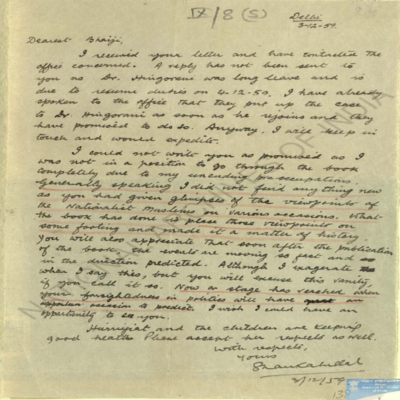 IX/8 (S)
Delhi
3-12-59.
Dearest Bhaiji,
I received your letter and have contacted the
office concerned. A reply has not been sent to
you as Dr. Hingorani was long leave and is
due to resume duties on 4.12.59, I have already
spoken to the office that they put up the case
to Dr. Hingorani as soon as he rejoins and they
have promised to do so. Anyway, I will keep in
touch and would expedite.
I could not write you as promised as I
was not in a position to go through the book
completely due to my unending pre-occupations.
Generally speaking I did not find any thing new
as you had given glimpses of the viewpoints of
the Nationalist Muslims on various occasions. What
the book has done is place those viewpoints on
some footing and made it a matter of history.
You will also appreciate that soon after the publication
of the book, the events are moving so fast and so
in the direction predicted. Although I exagerate
when I say this, but you will excuse this vanity,
if you call it so. Now a stage has reached when
your foresightedness in politics will have an
occasion to predict. I wish I could have an
opportunity to see you.
Hurriyat and the children are keeping
good health. Please accept her respects as well.
With respects,
Yours
3/12/59